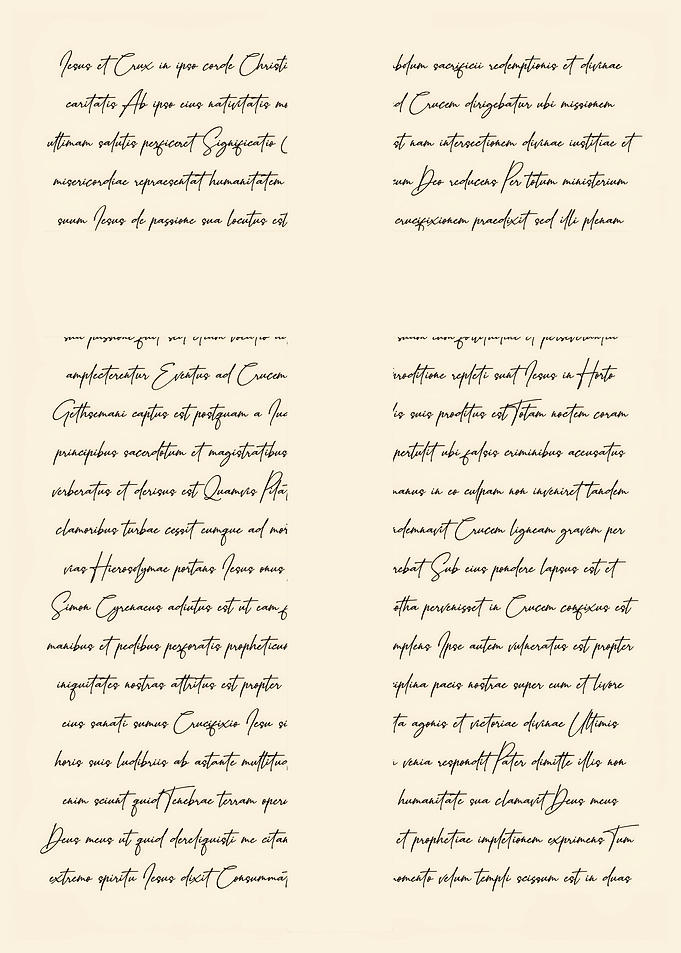 Iesus et Crux in ipso corde Christi bolum sacrificii redemptionis et divinae
caritatis Ab ipso eius nativitatis d Crucem dirigebatur ubi missionem
ultimam salutis perficeret Significatio st nam intersectionem divinae iustitiae et
misericordiae repraesentat humanitatem cum Deo reducens Per totum ministerium
suum Iesus de passione sua locutus est crucifixionem praedixit sed illi plenam
amplecterentur Eventus ad Crucem roditione repleti sunt Iesus in Horto
Gethsemani captus est postquam a Iud is suis proditus est Totam noctem coram
principibus sacerdotum et magistratibus pertulit ubi falsis criminibus accusatus
verberatus et derisus est Quamvis Pila manus in eo culpam non inveniret tandem
clamoribus turbae cessit eumque ad mor ndemnavit Crucem ligneam gravem per
vias Hierosolymae portans Iesus onus rebat Sub eius pondere lapsus est et
Simon Cyrenaeus adiutus est ut eam f otha pervenisset in Crucem confixus est
manibus et pedibus perforatis propheticum mplens Ipse autem vulneratus est propter
iniquitates nostras attritus est propter iplina pacis nostrae super eum et livore
eius sanati sumus Crucifixio Iesu si ta agonis et victoriae divinae Ultimis
horis suis ludibriis ab astante multitud venia respondit Pater dimitte illis non
enim sciunt quid Tenebrae terram operu humanitate sua clamavit Deus meus
Deus meus ut quid dereliquisti me citan et prophetiae impletionem exprimens Tum
extremo spiritu Iesus dixit Consummat omento velum templi scissum est in duas